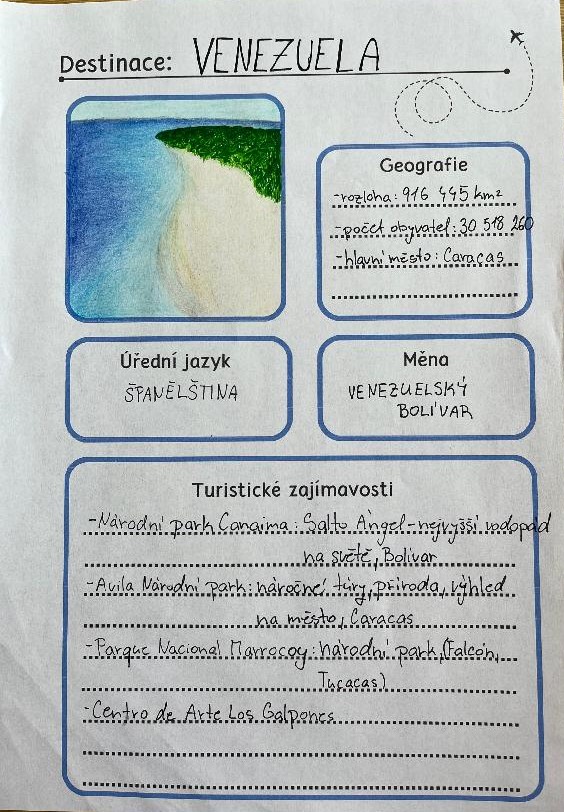 Destinace: VENEZUELA
Geografie
-rozloha: 916 445 km²
-počet obyvatel: 30 518 260
-hlavní město: Caracas
Úřední jazyk
ŠPANĚLŠTINA
Měna
VENEZUELSKÝ
BOLÍVAR
Turistické zajímavosti
-Národní park Canaima: Salto Ángel-nejvyšší vodopád
na světě, Bolívar
-Avila Národní park: náročné túry, příroda, výhled
na město, Caracas
-Parque Nacional Marrocoy: národní park, (Falcón,
Tucacas)
-Centro de Arte Los Galpones